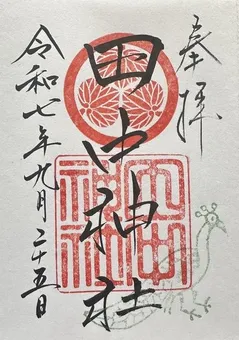 奉拝
田中神社
田中神社
令和七年九月二十五日